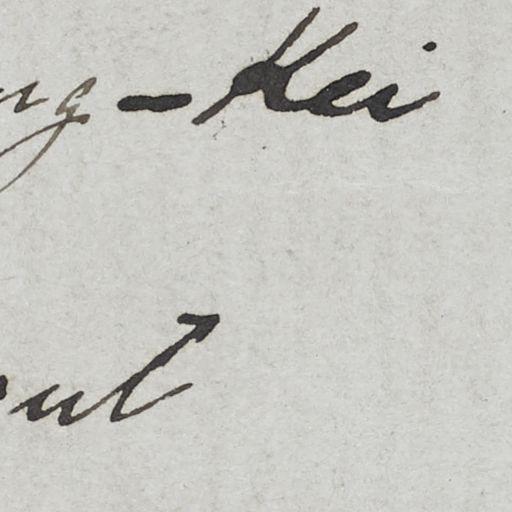 ng-Kei
out